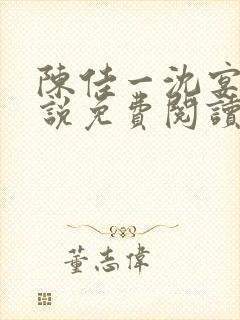 陳佳一沈宴
說免費閱讀
董志偉